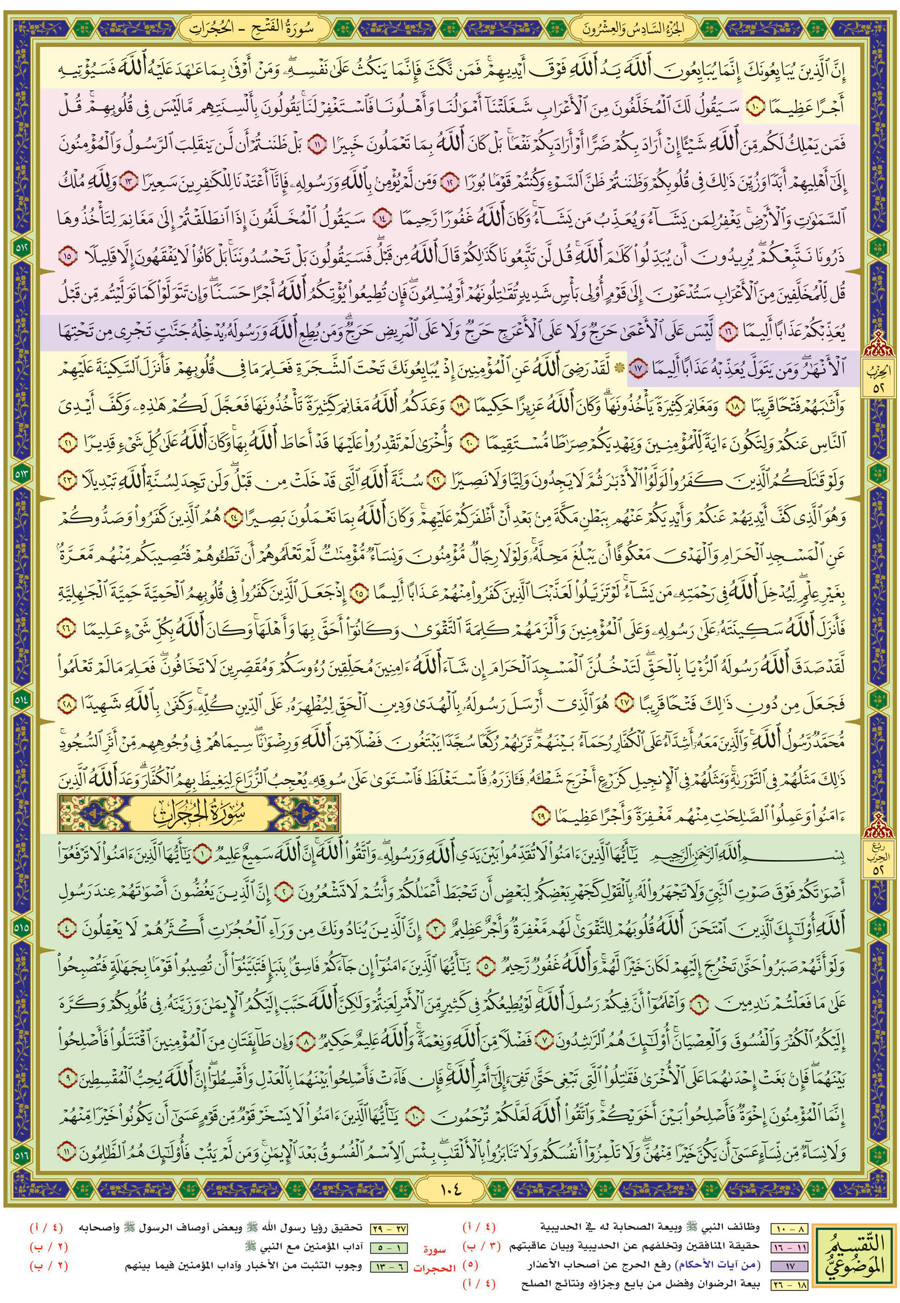 سُورَةُ الْفَتْحِ - الْحُجُرَاتِ
الجُزْءُ السَّادِسُ وَالعِشْرُونَ
إِنَّ ٱلَّذِينَ يُبَايِعُونَكَ إِنَّمَا يُبَايِعُونَ ٱللَّهَ يَدُ ٱللَّهِ فَوۡقَ أَيۡدِيهِمۡۚ فَمَن نَّكَثَ فَإِنَّمَا يَنكُثُ عَلَىٰ نَفۡسِهِۦۖ وَمَنۡ أَوۡفَىٰ بِمَا عَٰهَدَ عَلَيۡهُ ٱللَّهَ فَسَيُؤۡتِيهِ
أَجۡرًا عَظِيمٗا ١٠ سَيَقُولُ لَكَ ٱلۡمُخَلَّفُونَ مِنَ ٱلۡأَعۡرَابِ شَغَلَتۡنَآ أَمۡوَٰلُنَا وَأَهۡلُونَا فَٱسۡتَغۡفِرۡ لَنَاۚ يَقُولُونَ بِأَلۡسِنَتِهِم مَّا لَيۡسَ فِي قُلُوبِهِمۡۚ قُلۡ
فَمَن يَمۡلِكُ لَكُم مِّنَ ٱللَّهِ شَيۡـًٔا إِنۡ أَرَادَ بِكُمۡ ضَرًّا أَوۡ أَرَادَ بِكُمۡ نَفۡعَۢاۚ بَلۡ كَانَ ٱللَّهُ بِمَا تَعۡمَلُونَ خَبِيرَۢا ١١ بَلۡ ظَنَنتُمۡ أَن لَّن يَنقَلِبَ ٱلرَّسُولُ وَٱلۡمُؤۡمِنُونَ
إِلَىٰٓ أَهۡلِيهِمۡ أَبَدٗا وَزُيِّنَ ذَٰلِكَ فِي قُلُوبِكُمۡ وَظَنَنتُمۡ ظَنَّ ٱلسَّوۡءِ وَكُنتُمۡ قَوۡمَۢا بُورٗا ١٢ وَمَن لَّمۡ يُؤۡمِنۢ بِٱللَّهِ وَرَسُولِهِۦ فَإِنَّآ أَعۡتَدۡنَا لِلۡكَٰفِرِينَ سَعِيرٗا ١٣ وَلِلَّهِ مُلۡكُ
ٱلسَّمَٰوَٰتِ وَٱلۡأَرۡضِۚ يَغۡفِرُ لِمَن يَشَآءُ وَيُعَذِّبُ مَن يَشَآءُۚ وَكَانَ ٱللَّهُ غَفُورٗا رَّحِيمٗا ١٤ سَيَقُولُ ٱلۡمُخَلَّفُونَ إِذَا ٱنطَلَقۡتُمۡ إِلَىٰ مَغَانِمَ لِتَأۡخُذُوهَا
ذَرُونَا نَتَّبِعۡكُمۡۖ يُرِيدُونَ أَن يُبَدِّلُواْ كَلَٰمَ ٱللَّهِۚ قُل لَّن تَتَّبِعُونَا كَذَٰلِكُمۡ قَالَ ٱللَّهُ مِن قَبۡلُۖ فَسَيَقُولُونَ بَلۡ تَحۡسُدُونَنَاۚ بَلۡ كَانُواْ لَا يَفۡقَهُونَ إِلَّا قَلِيلٗا ١٥
قُل لِّلۡمُخَلَّفِينَ مِنَ ٱلۡأَعۡرَابِ سَتُدۡعَوۡنَ إِلَىٰ قَوۡمٍ أُوْلِي بَأۡسٖ شَدِيدٖ تُقَٰتِلُونَهُمۡ أَوۡ يُسۡلِمُونَۖ فَإِن تُطِيعُواْ يُؤۡتِكُمُ ٱللَّهُ أَجۡرًا حَسَنٗاۖ وَإِن تَتَوَلَّوۡاْ كَمَا تَوَلَّيۡتُم مِّن قَبۡلُ
يُعَذِّبۡكُمۡ عَذَابًا أَلِيمٗا ١٦ لَّيۡسَ عَلَى ٱلۡأَعۡمَىٰ حَرَجٞ وَلَا عَلَى ٱلۡأَعۡرَجِ حَرَجٞ وَلَا عَلَى ٱلۡمَرِيضِ حَرَجٞۗ وَمَن يُطِعِ ٱللَّهَ وَرَسُولَهُۥ يُدۡخِلۡهُ جَنَّٰتٖ تَجۡرِي مِن تَحۡتِهَا
ٱلۡأَنۡهَٰرُۖ وَمَن يَتَوَلَّ يُعَذِّبۡهُ عَذَابًا أَلِيمٗا ١٧ ۞ لَّقَدۡ رَضِيَ ٱللَّهُ عَنِ ٱلۡمُؤۡمِنِينَ إِذۡ يُبَايِعُونَكَ تَحۡتَ ٱلشَّجَرَةِ فَعَلِمَ مَا فِي قُلُوبِهِمۡ فَأَنزَلَ ٱلسَّكِينَةَ عَلَيۡهِمۡ
وَأَثَٰبَهُمۡ فَتۡحٗا قَرِيبٗا ١٨ وَمَغَانِمَ كَثِيرَةٗ يَأۡخُذُونَهَاۗ وَكَانَ ٱللَّهُ عَزِيزًا حَكِيمٗا ١٩ وَعَدَكُمُ ٱللَّهُ مَغَانِمَ كَثِيرَةٗ تَأۡخُذُونَهَا فَعَجَّلَ لَكُمۡ هَٰذِهِۦ وَكَفَّ أَيۡدِيَ
ٱلنَّاسِ عَنكُمۡ وَلِتَكُونَ ءَايَةٗ لِّلۡمُؤۡمِنِينَ وَيَهۡدِيَكُمۡ صِرَٰطٗا مُّسۡتَقِيمٗا ٢٠ وَأُخۡرَىٰ لَمۡ تَقۡدِرُواْ عَلَيۡهَا قَدۡ أَحَاطَ ٱللَّهُ بِهَاۚ وَكَانَ ٱللَّهُ عَلَىٰ كُلِّ شَيۡءٖ قَدِيرٗا ٢١
وَلَوۡ قَٰتَلَكُمُ ٱلَّذِينَ كَفَرُواْ لَوَلَّوُاْ ٱلۡأَدۡبَٰرَ ثُمَّ لَا يَجِدُونَ وَلِيّٗا وَلَا نَصِيرٗا ٢٢ سُنَّةَ ٱللَّهِ ٱلَّتِي قَدۡ خَلَتۡ مِن قَبۡلُۖ وَلَن تَجِدَ لِسُنَّةِ ٱللَّهِ تَبۡدِيلٗا ٢٣
وَهُوَ ٱلَّذِي كَفَّ أَيۡدِيَهُمۡ عَنكُمۡ وَأَيۡدِيَكُمۡ عَنۡهُم بِبَطۡنِ مَكَّةَ مِنۢ بَعۡدِ أَنۡ أَظۡفَرَكُمۡ عَلَيۡهِمۡۚ وَكَانَ ٱللَّهُ بِمَا تَعۡمَلُونَ بَصِيرًا ٢٤ هُمُ ٱلَّذِينَ كَفَرُواْ وَصَدُّوكُمۡ
عَنِ ٱلۡمَسۡجِدِ ٱلۡحَرَامِ وَٱلۡهَدۡيَ مَعۡكُوفًا أَن يَبۡلُغَ مَحِلَّهُۥۚ وَلَوۡلَا رِجَالٞ مُّؤۡمِنُونَ وَنِسَآءٞ مُّؤۡمِنَٰتٞ لَّمۡ تَعۡلَمُوهُمۡ أَن تَطَـُٔوهُمۡ فَتُصِيبَكُم مِّنۡهُم مَّعَرَّةُۢ
بِغَيۡرِ عِلۡمٖۖ لِّيُدۡخِلَ ٱللَّهُ فِي رَحۡمَتِهِۦ مَن يَشَآءُۚ لَوۡ تَزَيَّلُواْ لَعَذَّبۡنَا ٱلَّذِينَ كَفَرُواْ مِنۡهُمۡ عَذَابًا أَلِيمًا ٢٥ إِذۡ جَعَلَ ٱلَّذِينَ كَفَرُواْ فِي قُلُوبِهِمُ ٱلۡحَمِيَّةَ حَمِيَّةَ ٱلۡجَٰهِلِيَّةِ
فَأَنزَلَ ٱللَّهُ سَكِينَتَهُۥ عَلَىٰ رَسُولِهِۦ وَعَلَى ٱلۡمُؤۡمِنِينَ وَأَلۡزَمَهُمۡ كَلِمَةَ ٱلتَّقۡوَىٰ وَكَانُوٓاْ أَحَقَّ بِهَا وَأَهۡلَهَاۚ وَكَانَ ٱللَّهُ بِكُلِّ شَيۡءٍ عَلِيمٗا ٢٦
لَّقَدۡ صَدَقَ ٱللَّهُ رَسُولَهُ ٱلرُّءۡيَا بِٱلۡحَقِّۖ لَتَدۡخُلُنَّ ٱلۡمَسۡجِدَ ٱلۡحَرَامَ إِن شَآءَ ٱللَّهُ ءَامِنِينَ مُحَلِّقِينَ رُءُوسَكُمۡ وَمُقَصِّرِينَ لَا تَخَافُونَۖ فَعَلِمَ مَا لَمۡ تَعۡلَمُواْ
فَجَعَلَ مِن دُونِ ذَٰلِكَ فَتۡحٗا قَرِيبًا ٢٧ هُوَ ٱلَّذِيٓ أَرۡسَلَ رَسُولَهُۥ بِٱلۡهُدَىٰ وَدِينِ ٱلۡحَقِّ لِيُظۡهِرَهُۥ عَلَى ٱلدِّينِ كُلِّهِۦۚ وَكَفَىٰ بِٱللَّهِ شَهِيدٗا ٢٨
مُّحَمَّدٞ رَّسُولُ ٱللَّهِۚ وَٱلَّذِينَ مَعَهُۥٓ أَشِدَّآءُ عَلَى ٱلۡكُفَّارِ رُحَمَآءُ بَيۡنَهُمۡۖ تَرَىٰهُمۡ رُكَّعٗا سُجَّدٗا يَبۡتَغُونَ فَضۡلٗا مِّنَ ٱللَّهِ وَرِضۡوَٰنٗاۖ سِيمَاهُمۡ فِي وُجُوهِهِم مِّنۡ أَثَرِ ٱلسُّجُودِۚ
ذَٰلِكَ مَثَلُهُمۡ فِي ٱلتَّوۡرَىٰةِۚ وَمَثَلُهُمۡ فِي ٱلۡإِنجِيلِ كَزَرۡعٍ أَخۡرَجَ شَطۡـَٔهُۥ فَـَٔازَرَهُۥ فَٱسۡتَغۡلَظَ فَٱسۡتَوَىٰ عَلَىٰ سُوقِهِۦ يُعۡجِبُ ٱلزُّرَّاعَ لِيَغِيظَ بِهِمُ ٱلۡكُفَّارَۗ وَعَدَ ٱللَّهُ ٱلَّذِينَ
ءَامَنُواْ وَعَمِلُواْ ٱلصَّٰلِحَٰتِ مِنۡهُم مَّغۡفِرَةٗ وَأَجۡرًا عَظِيمَۢا ٢٩
سُورَةُ الْحُجُرَاتِ
بِسۡمِ ٱللَّهِ ٱلرَّحۡمَٰنِ ٱلرَّحِيمِ يَٰٓأَيُّهَا ٱلَّذِينَ ءَامَنُواْ لَا تُقَدِّمُواْ بَيۡنَ يَدَيِ ٱللَّهِ وَرَسُولِهِۦۖ وَٱتَّقُواْ ٱللَّهَۚ إِنَّ ٱللَّهَ سَمِيعٌ عَلِيمٞ ١ يَٰٓأَيُّهَا ٱلَّذِينَ ءَامَنُواْ لَا تَرۡفَعُوٓاْ
أَصۡوَٰتَكُمۡ فَوۡقَ صَوۡتِ ٱلنَّبِيِّ وَلَا تَجۡهَرُواْ لَهُۥ بِٱلۡقَوۡلِ كَجَهۡرِ بَعۡضِكُمۡ لِبَعۡضٍ أَن تَحۡبَطَ أَعۡمَٰلُكُمۡ وَأَنتُمۡ لَا تَشۡعُرُونَ ٢ إِنَّ ٱلَّذِينَ يَغُضُّونَ أَصۡوَٰتَهُمۡ عِندَ رَسُولِ
ٱللَّهِ أُوْلَٰٓئِكَ ٱلَّذِينَ ٱمۡتَحَنَ ٱللَّهُ قُلُوبَهُمۡ لِلتَّقۡوَىٰۚ لَهُم مَّغۡفِرَةٞ وَأَجۡرٌ عَظِيمٌ ٣ إِنَّ ٱلَّذِينَ يُنَادُونَكَ مِن وَرَآءِ ٱلۡحُجُرَٰتِ أَكۡثَرُهُمۡ لَا يَعۡقِلُونَ ٤
وَلَوۡ أَنَّهُمۡ صَبَرُواْ حَتَّىٰ تَخۡرُجَ إِلَيۡهِمۡ لَكَانَ خَيۡرٗا لَّهُمۡۚ وَٱللَّهُ غَفُورٞ رَّحِيمٞ ٥ يَٰٓأَيُّهَا ٱلَّذِينَ ءَامَنُوٓاْ إِن جَآءَكُمۡ فَاسِقُۢ بِنَبَإٖ فَتَبَيَّنُوٓاْ أَن تُصِيبُواْ قَوۡمَۢا بِجَهَٰلَةٖ فَتُصۡبِحُواْ
عَلَىٰ مَا فَعَلۡتُمۡ نَٰدِمِينَ ٦ وَٱعۡلَمُوٓاْ أَنَّ فِيكُمۡ رَسُولَ ٱللَّهِۚ لَوۡ يُطِيعُكُمۡ فِي كَثِيرٖ مِّنَ ٱلۡأَمۡرِ لَعَنِتُّمۡ وَلَٰكِنَّ ٱللَّهَ حَبَّبَ إِلَيۡكُمُ ٱلۡإِيمَٰنَ وَزَيَّنَهُۥ فِي قُلُوبِكُمۡ وَكَرَّهَ
إِلَيۡكُمُ ٱلۡكُفۡرَ وَٱلۡفُسُوقَ وَٱلۡعِصۡيَانَۚ أُوْلَٰٓئِكَ هُمُ ٱلرَّٰشِدُونَ ٧ فَضۡلٗا مِّنَ ٱللَّهِ وَنِعۡمَةٗۚ وَٱللَّهُ عَلِيمٌ حَكِيمٞ ٨ وَإِن طَآئِفَتَانِ مِنَ ٱلۡمُؤۡمِنِينَ ٱقۡتَتَلُواْ فَأَصۡلِحُواْ
بَيۡنَهُمَاۖ فَإِنۢ بَغَتۡ إِحۡدَىٰهُمَا عَلَى ٱلۡأُخۡرَىٰ فَقَٰتِلُواْ ٱلَّتِي تَبۡغِي حَتَّىٰ تَفِيٓءَ إِلَىٰٓ أَمۡرِ ٱللَّهِۚ فَإِن فَآءَتۡ فَأَصۡلِحُواْ بَيۡنَهُمَا بِٱلۡعَدۡلِ وَأَقۡسِطُوٓاْۖ إِنَّ ٱللَّهَ يُحِبُّ ٱلۡمُقۡسِطِينَ ٩
إِنَّمَا ٱلۡمُؤۡمِنُونَ إِخۡوَةٞ فَأَصۡلِحُواْ بَيۡنَ أَخَوَيۡكُمۡۚ وَٱتَّقُواْ ٱللَّهَ لَعَلَّكُمۡ تُرۡحَمُونَ ١٠ يَٰٓأَيُّهَا ٱلَّذِينَ ءَامَنُواْ لَا يَسۡخَرۡ قَوۡمٞ مِّن قَوۡمٍ عَسَىٰٓ أَن يَكُونُواْ خَيۡرٗا مِّنۡهُمۡ
وَلَا نِسَآءٞ مِّن نِّسَآءٍ عَسَىٰٓ أَن يَكُنَّ خَيۡرٗا مِّنۡهُنَّۖ وَلَا تَلۡمِزُوٓاْ أَنفُسَكُمۡ وَلَا تَنَابَزُواْ بِٱلۡأَلۡقَٰبِۖ بِئۡسَ ٱلِٱسۡمُ ٱلۡفُسُوقُ بَعۡدَ ٱلۡإِيمَٰنِۚ وَمَن لَّمۡ يَتُبۡ فَأُوْلَٰٓئِكَ هُمُ ٱلظَّٰلِمُونَ ١١
الحِزْبُ
٥٢
رُبْعُ
الحِزْبِ
٥٢
٥١٢
٥١٣
٥١٤
٥١٥
٥١٦
١٠٤
التَّقْسِيمُ
المَوْضُوعِيُّ
٨ - ١٠ وظائف النبي ﷺ وبيعة الصحابة له في الحديبية (٤ / أ)
١١ - ١٦ حقيقة المنافقين وتخلفهم عن الحديبية وبيان عاقبتهم (٣ / ب)
١٧ (من آيات الأحكام) رفع الحرج عن أصحاب الأعذار (٥)
١٨ - ٢٦ بيعة الرضوان وفضل من بايع وجزاؤه ونتائج الصلح (٤ / أ)
٢٧ - ٢٩ تحقيق رؤيا رسول الله ﷺ وبعض أوصاف الرسول ﷺ وأصحابه (٤ / أ)
سورة
الحجرات
١ - ٥ آداب المؤمنين مع النبي ﷺ (٢ / ب)
٦ - ١٣ وجوب التثبت من الأخبار وآداب المؤمنين فيما بينهم (٢ / ب)